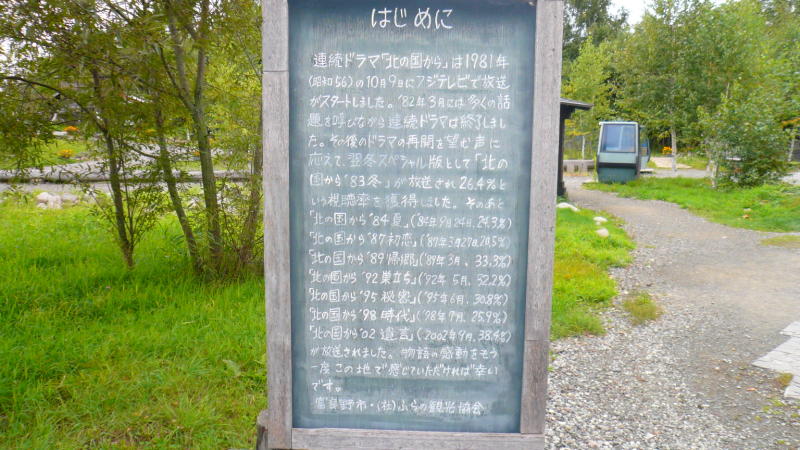 はじめに
連続ドラマ「北の国から」は1981年
(昭和56)の10月9日にフジテレビで放送
がスタートしました。'82年3月には多くの話
題を呼びながら連続ドラマは終了しまし
た。その後のドラマの再開を望む声に
応えて、翌冬スペシャル版として「北の
国から'83冬」が放送され26.4%と
いう視聴率を獲得しました。そのあと
「北の国から'84夏」('84年9月24日、24.3%)
「北の国から'87初恋」('87年3月27日20.5%)
「北の国から'89帰郷」('89年3月、33.3%)
「北の国から'92巣立ち」('92年5月、32.2%)
「北の国から'95秘密」('95年6月、30.8%)
「北の国から'98時代」('98年7月、25.9%)
「北の国から'02遺言」(2002年9月、38.4%)
が放送されました。物語の感動をもう
一度この地で感じていただければ幸い
です。
富良野市・(社)ふらの観光協会